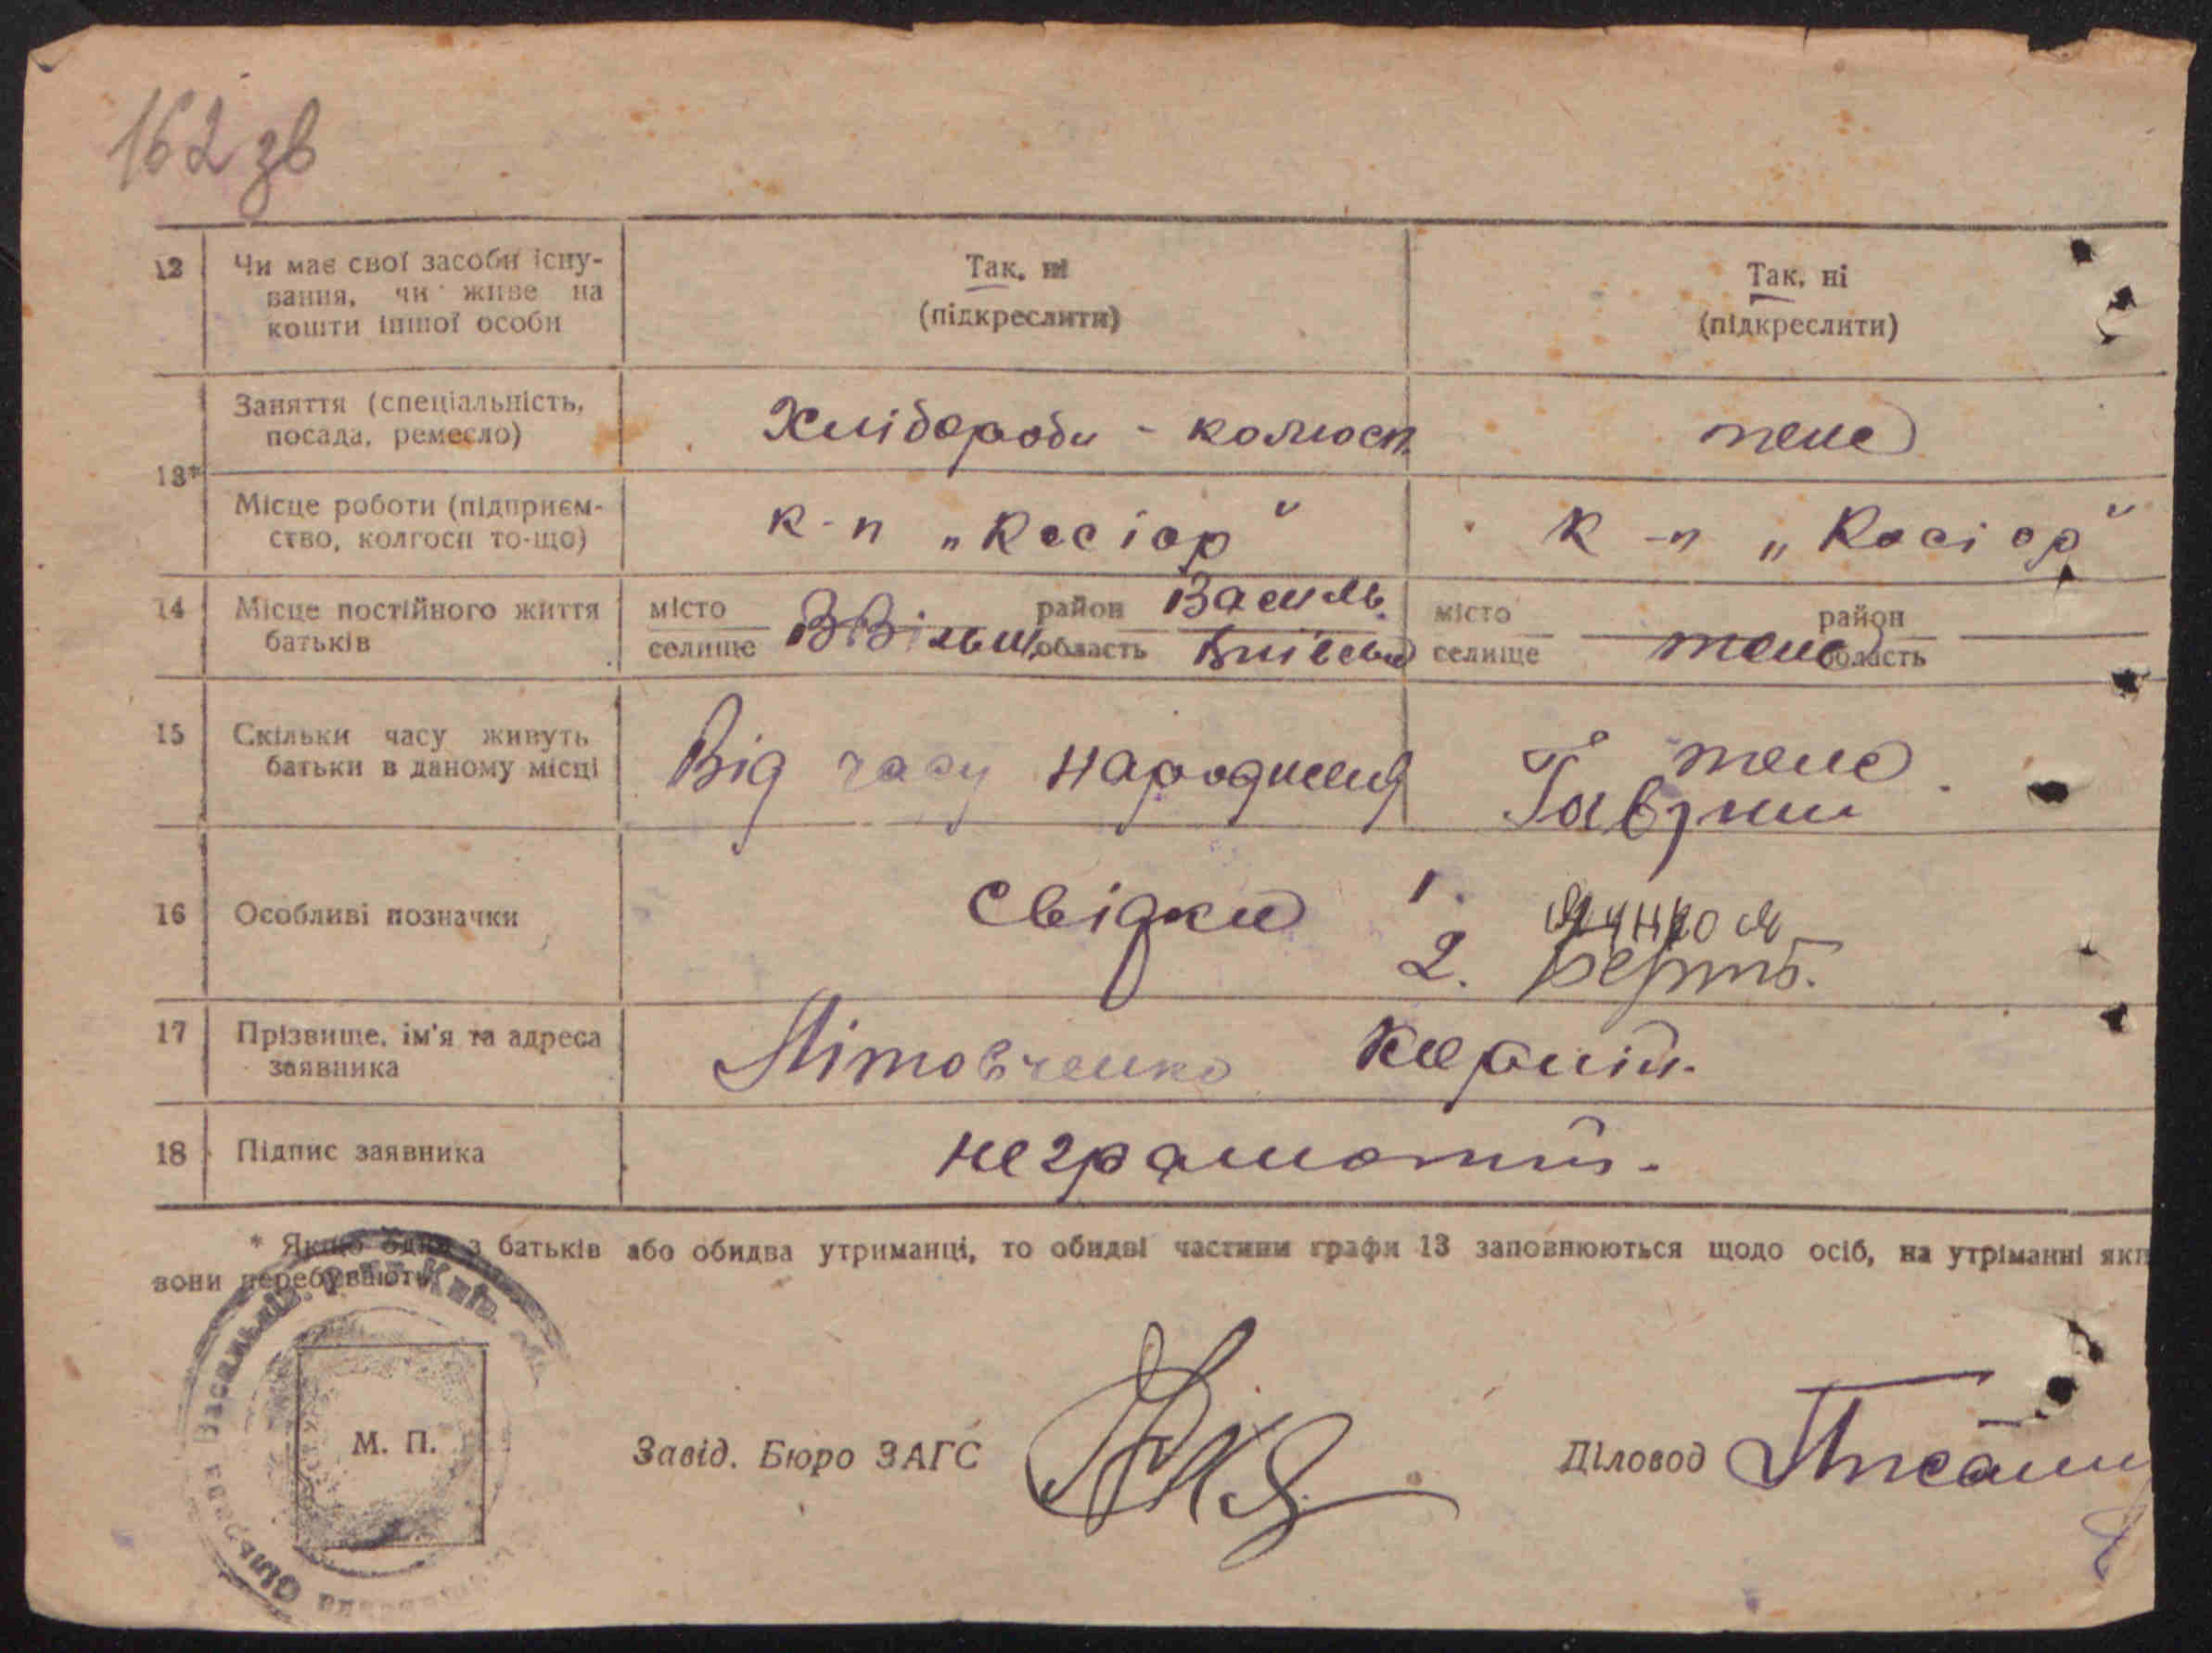 162 зв
12 Чи має свої засоби існу-
вання, чи живе на
кошти іншої особи
Так, ні
(підкреслити)
Так, ні
(підкреслити)
13*
Заняття (спеціальність,
посада, ремесло)
Хлібороби - колгосп.
теж
Місце роботи (підприєм-
ство, колгосп то-що)
к-п „Косіор"
к-п „Косіор"
14 Місце постійного життя
батьків
місто
селище
район
область
Василь.
місто
селище
теж
район
область
15 Скільки часу живуть
батьки в даному місці
Від часу народження
теж
16 Особливі позначки
Свідки 1.
2.
17 Прізвище, ім'я та адреса
заявника
Літовченко
18 Підпис заявника
неграмотний.
* Якщо один з батьків або обидва утриманці, то обидві частини графи 13 заповнюються щодо осіб, на утріманні яки
вони перебувають.
М. П.
Завід. Бюро ЗАГС
Діловод